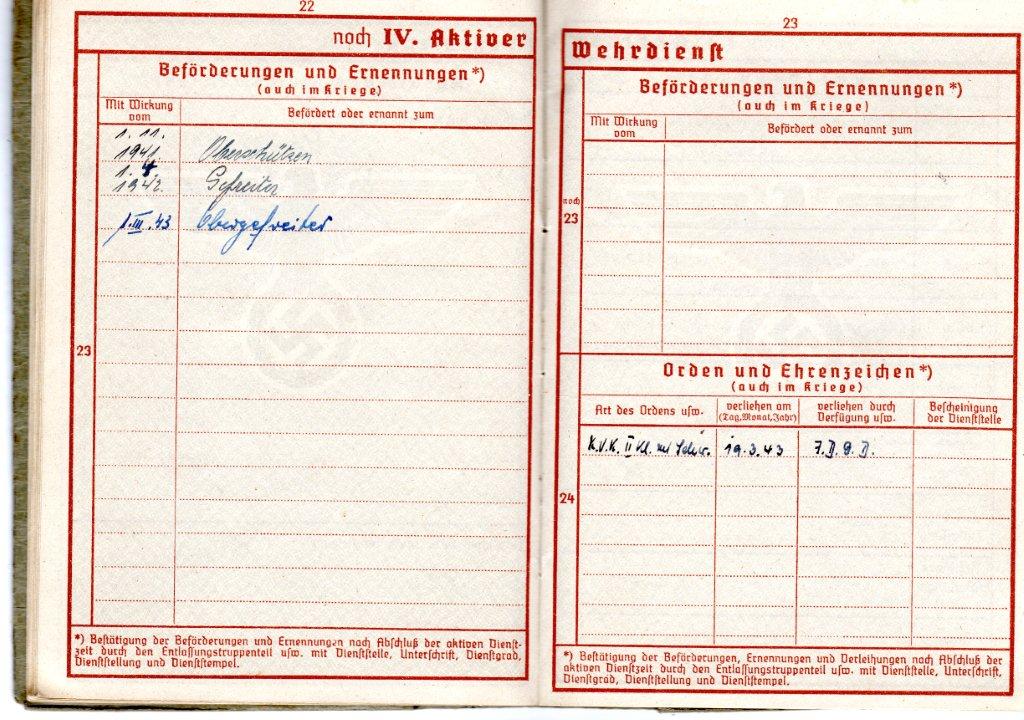 22
noch IV. Aktiver
Beförderungen und Ernennungen*)
(auch im Kriege)
Mit Wirkung vom
Befördert oder ernannt zum
1. 11.
1941.
Oberschützen
1. 4.
1942.
Gefreiter
1.III.43 Obergefreiter
23
*) Bestätigung der Beförderungen und Ernennungen nach Abschluß der aktiven Dienst-
zeit durch den Entlassungstruppenteil usw. mit Dienststelle, Unterschrift, Dienstgrad,
Dienststellung und Dienststempel.
23
Wehrdienst
Beförderungen und Ernennungen*)
(auch im Kriege)
Mit Wirkung vom
Befördert oder ernannt zum
noch
23
Orden und Ehrenzeichen*)
(auch im Kriege)
Art des Ordens usw.
verliehen am
(Tag, Monat, Jahr)
verliehen durch
Verfügung usw.
Bescheinigung
der Dienststelle
K.V.K. II Kl. m/ Schw. 19.3.43
24
*) Bestätigung der Beförderungen, Ernennungen und Verleihungen nach Abschluß der
aktiven Dienstzeit durch den Entlassungstruppenteil usw. mit Dienststelle, Unterschrift,
Dienstgrad, Dienststellung und Dienststempel.